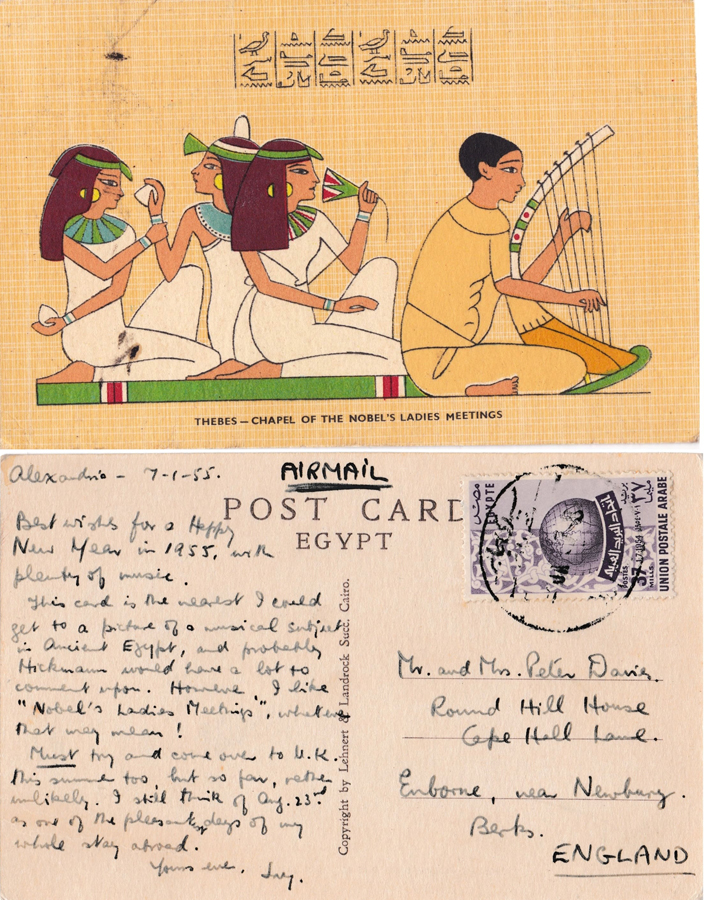 THEBES — CHAPEL OF THE NOBEL'S LADIES MEETINGS
Alexandria - 7-1-55.
AIRMAIL
POST CARD
EGYPT
Best wishes for a Happy
New Year in 1955, with
plenty of music.
This card is the nearest I could
get to a picture of a musical subject
in Ancient Egypt, and probably
Hickmann would have a lot to
comment upon. However I like
"Nobel's Ladies Meetings", whatever
that may mean!
Must try and come over to U.K.
this summer too, but so far, rather
unlikely. I still think of Aug. 23rd
as one of the pleasantest days of my
whole stay abroad.
Yours ever,
Copyright by Lehnert & Landrock Succ. Cairo.
EGYPTE
مصر
POSTES
37
MILLS
٣٧
UNION POSTALE ARABE
Mr. and Mrs. Peter Davies.
Round Hill House
Cope Hall Lane.
Enborne, near Newbury.
Berks.
ENGLAND